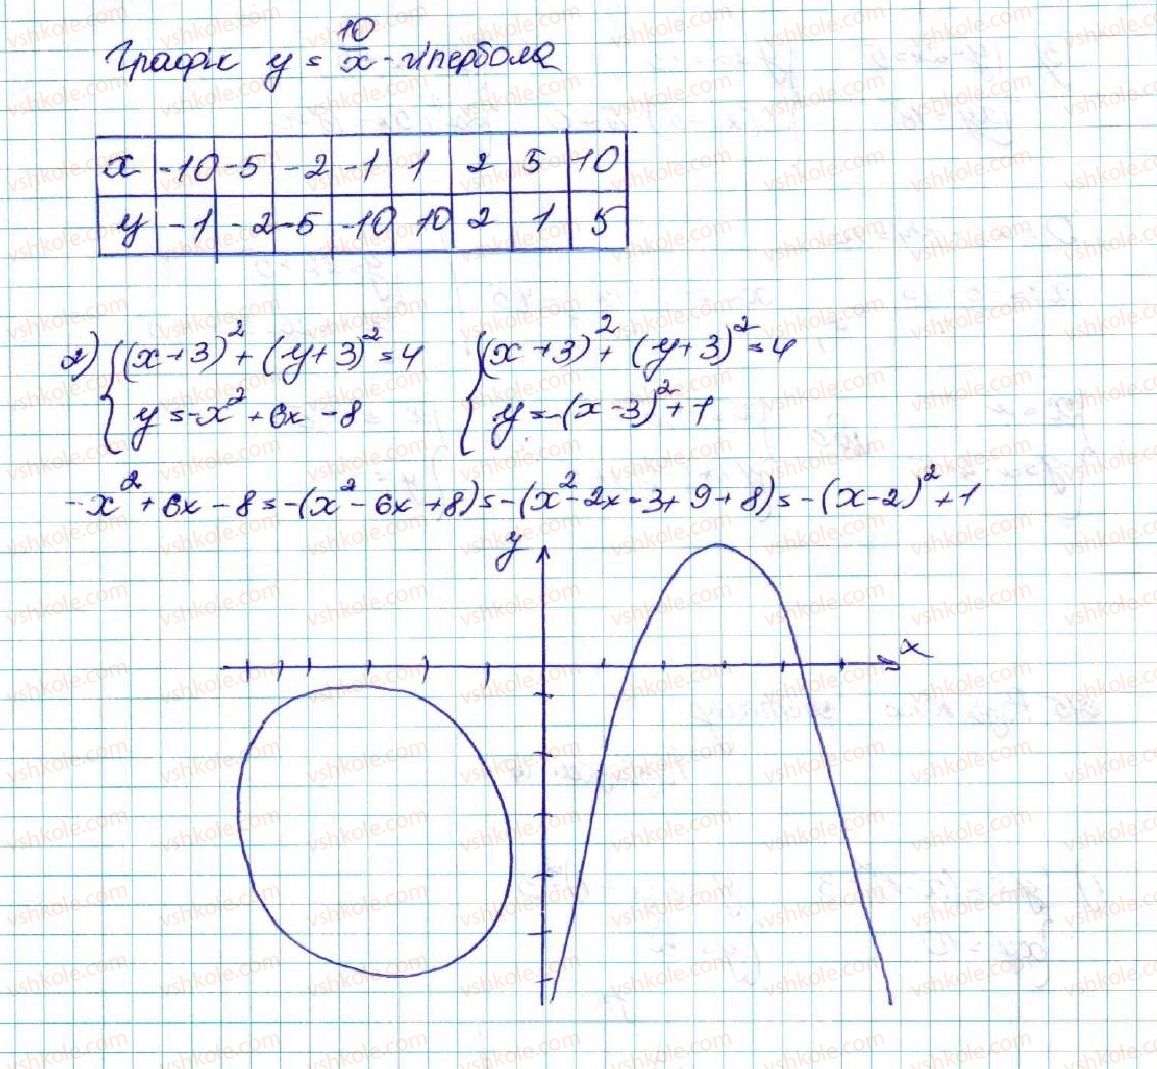 Графік y = 10/x - гіпербола
x -10 -5 -2 -1 1 2 5 10
y -1 -2 -5 -10 10 2 1 5
2) { (x+3)² + (y+3)² = 4 { (x+3)² + (y+3)² = 4
y = -x² + 6x - 8 y = -(x-3)² + 1
-x² + 6x - 8 = -(x² - 6x + 8) = -(x² - 2x·3 + 9 + 8) = -(x-2)² + 1
y
x
vshkole.com